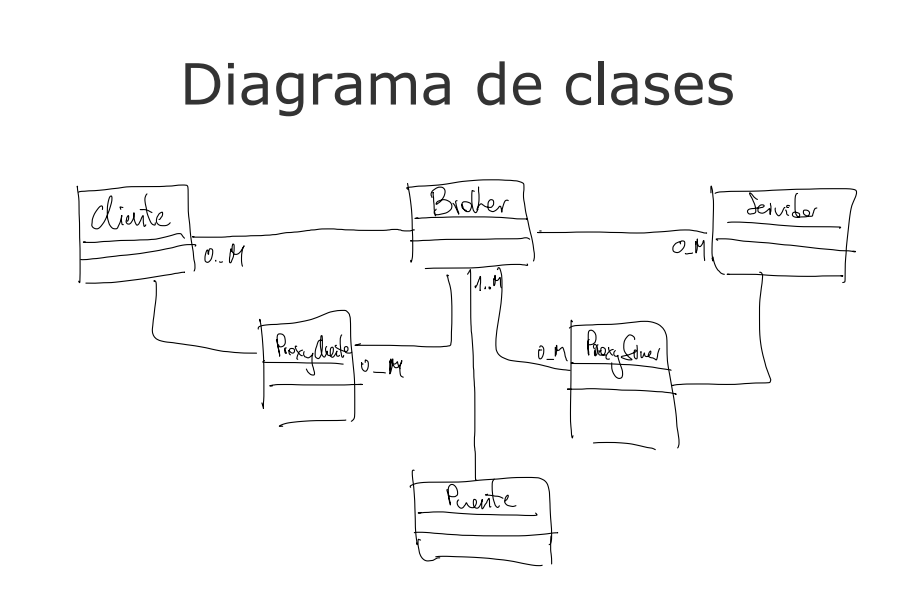 Diagrama de clases
Cliente
Brother
Servidor
0..M
1..M
0_M
ProxyCliente
0_M
0_M
ProxyServer
Puente